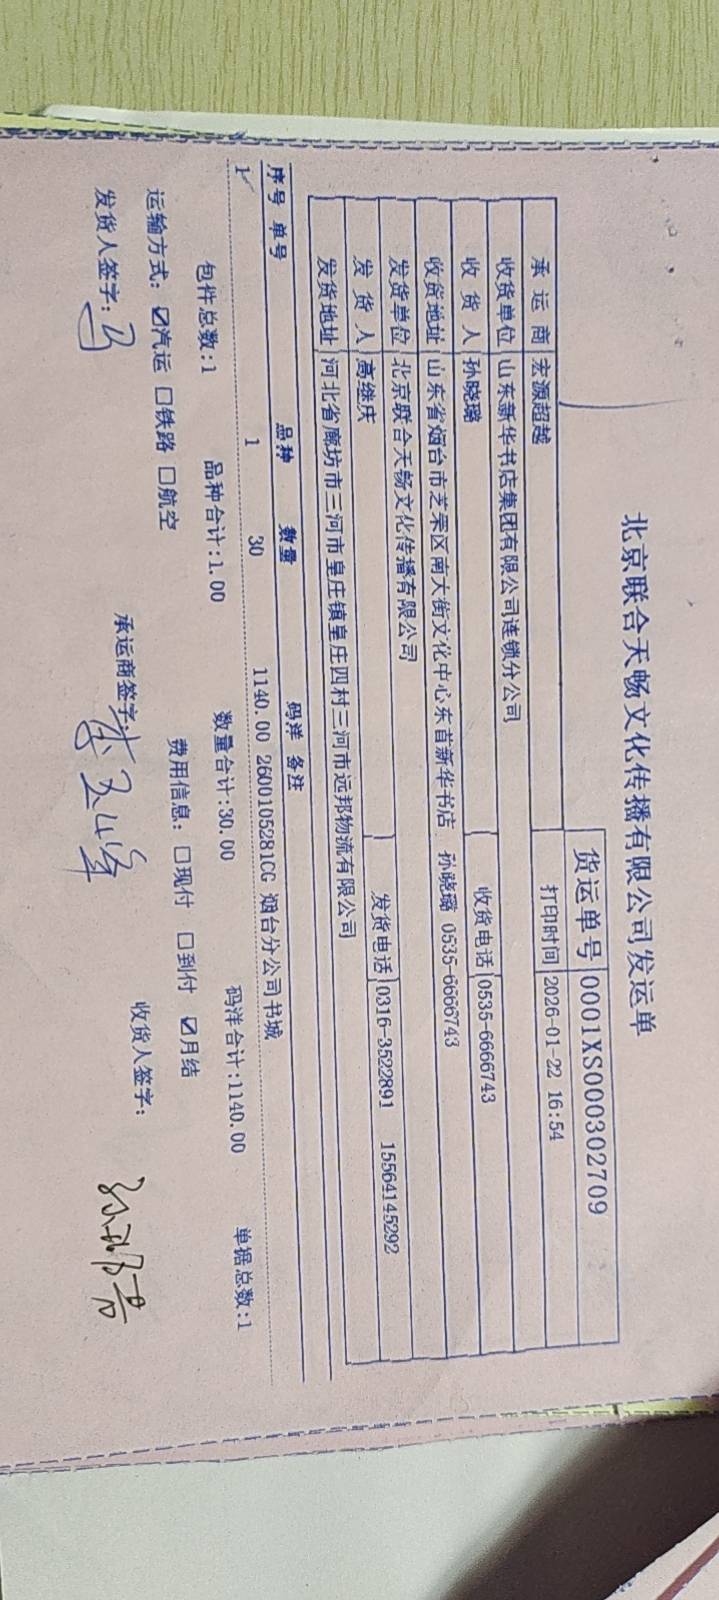 北京联合天畅文化传播有限公司发运单
货运单号 0001XS000302709
承运商 宏源超越 打印时间 2026-01-22 16:54
收货单位 山东新华书店集团有限公司连锁分公司
收货人 孙晓璐 收货电话 0535-6666743
收货地址 山东省烟台市芝罘区南大街文化中心东首新华书店 孙晓璐 0535-6666743
发货单位 北京联合天畅文化传播有限公司
发货人 高继庆 发货电话 0316-3522891 15564145292
发货地址 河北省廊坊市三河市皇庄镇皇庄四村三河市远邦物流有限公司
序号 单号 品种 数量 码洋 备注
1 1 30 1140.00 2600105281CG 烟台分公司书城
包件总数:1 品种合计:1.00 数量合计:30.00 码洋合计:1140.00 单据总数:1
运输方式: ☑汽运 □铁路 □航空 费用信息: □现付 □到付 ☑月结
发货人签字: 承运商签字: 收货人签字: